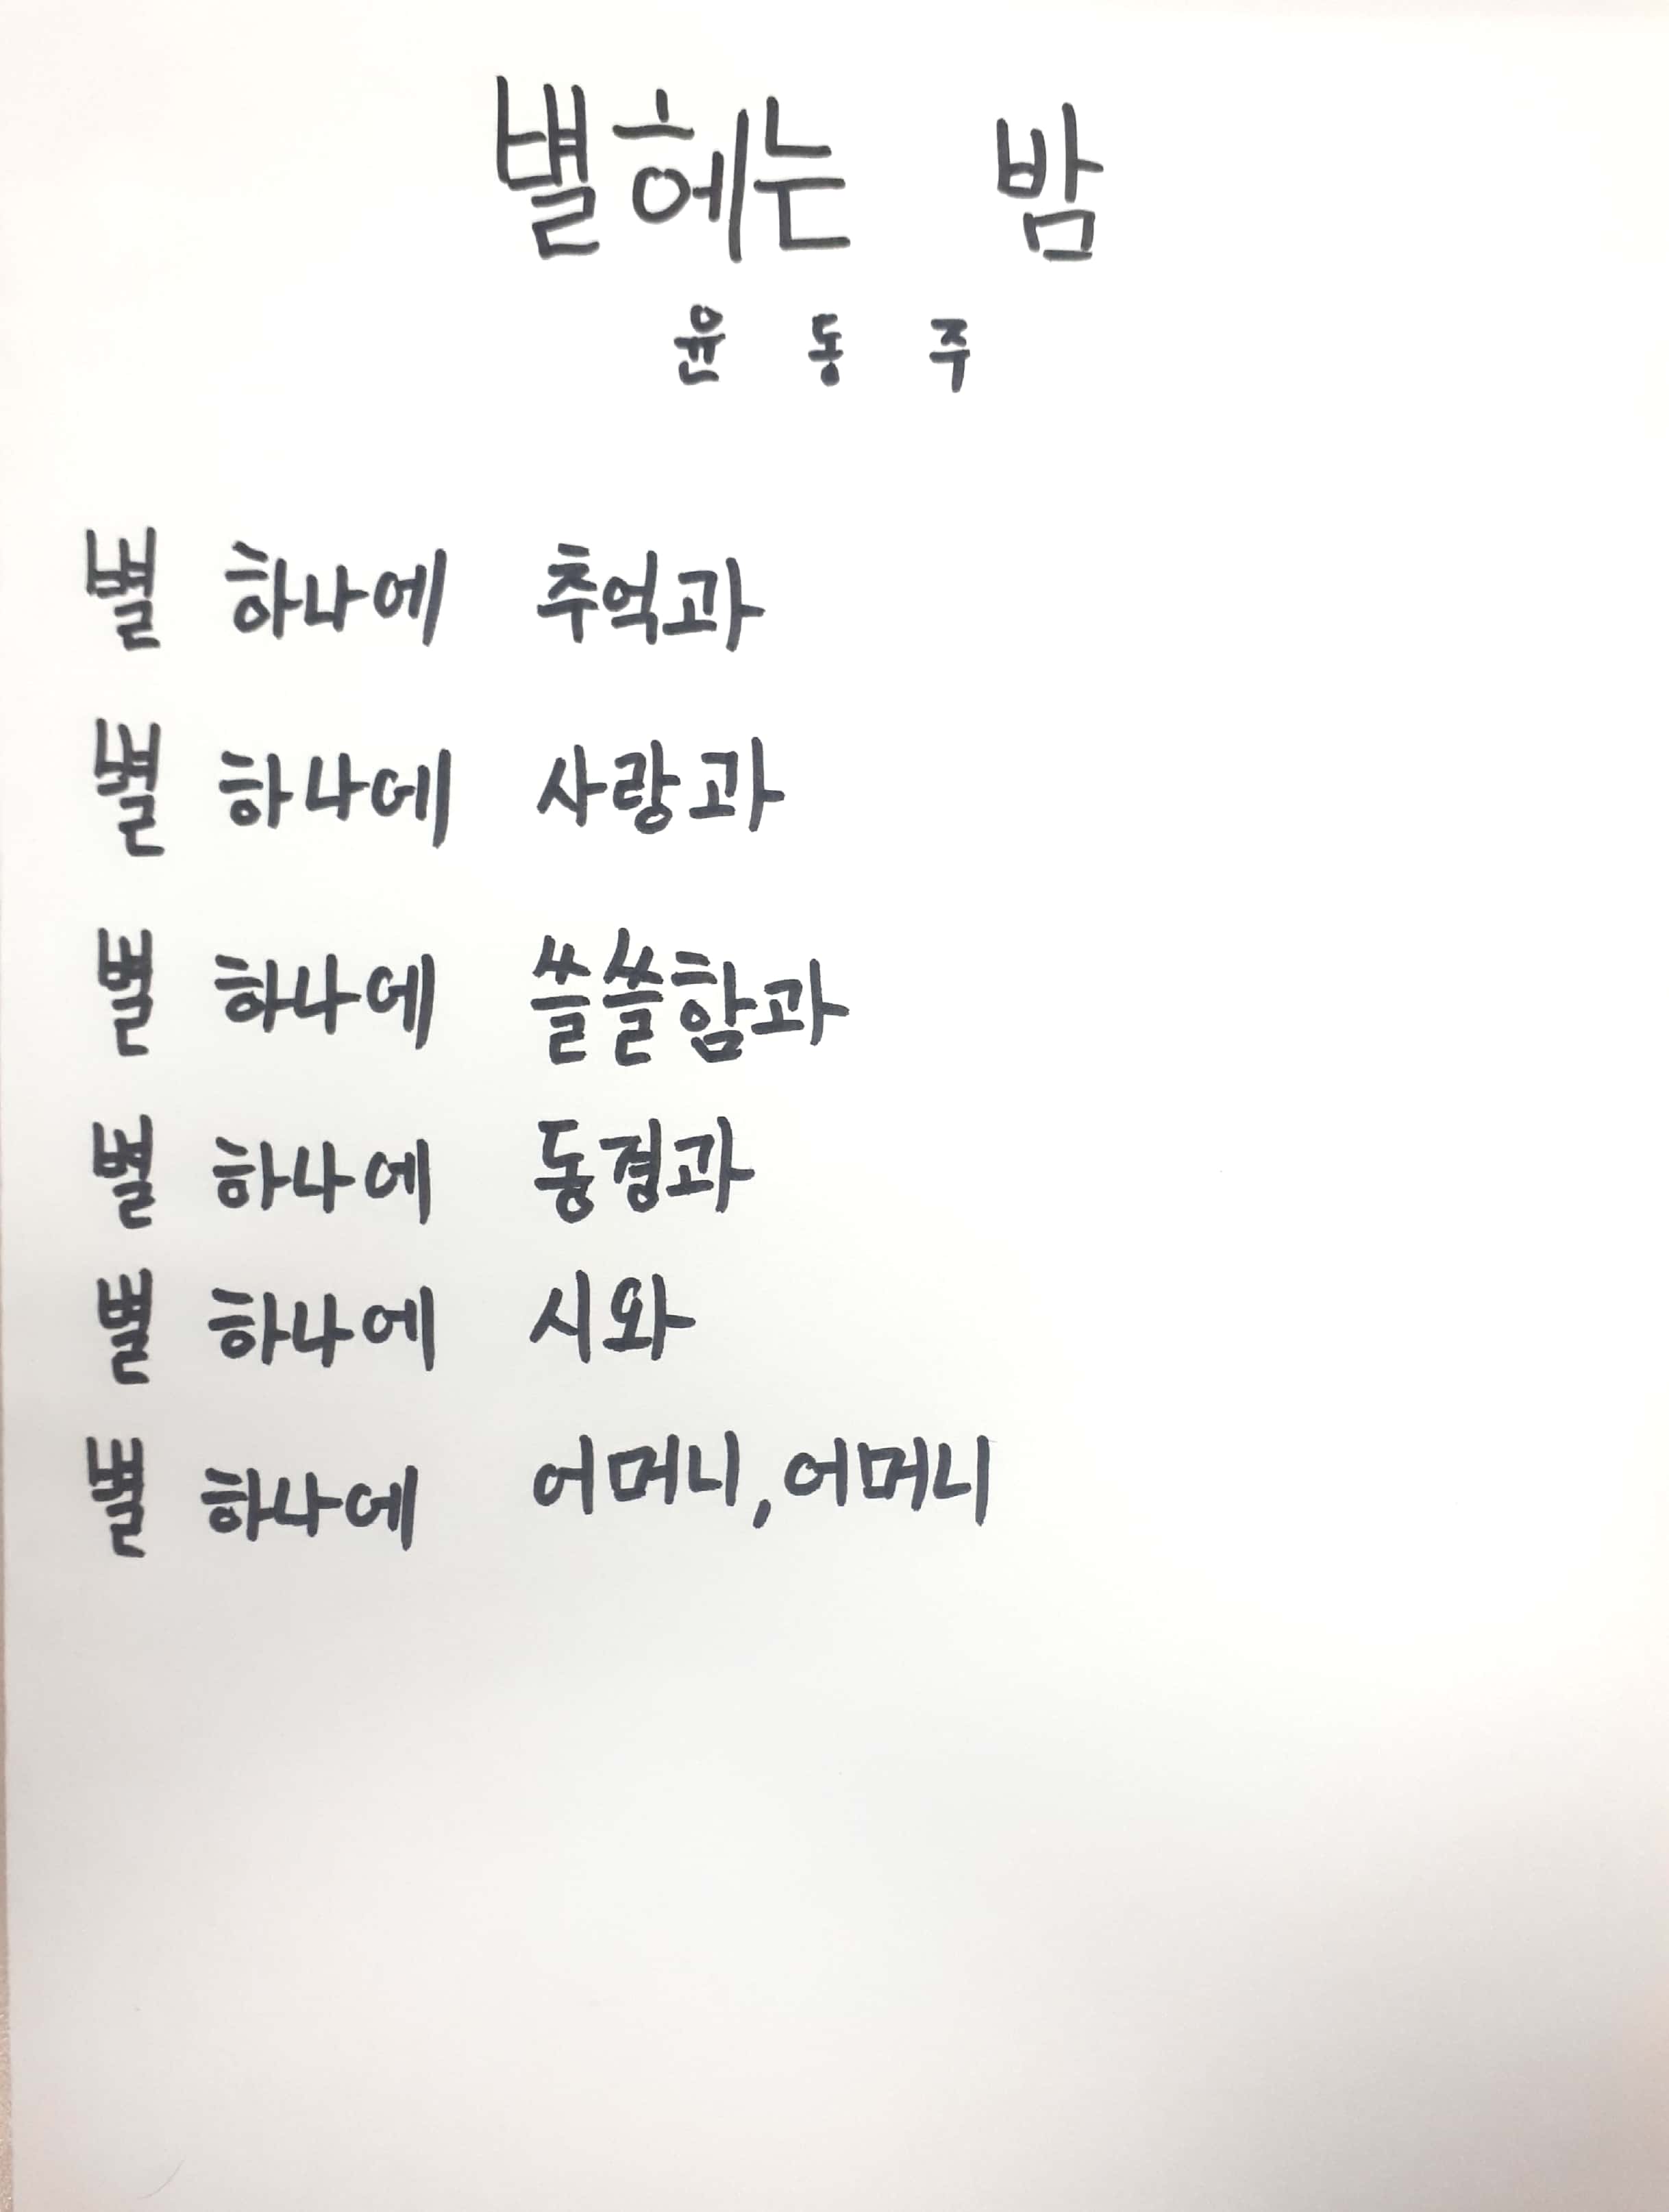 별 헤는 밤
윤 동 주
별 하나에 추억과
별 하나에 사랑과
별 하나에 쓸쓸함과
별 하나에 동경과
별 하나에 시와
별 하나에 어머니, 어머니